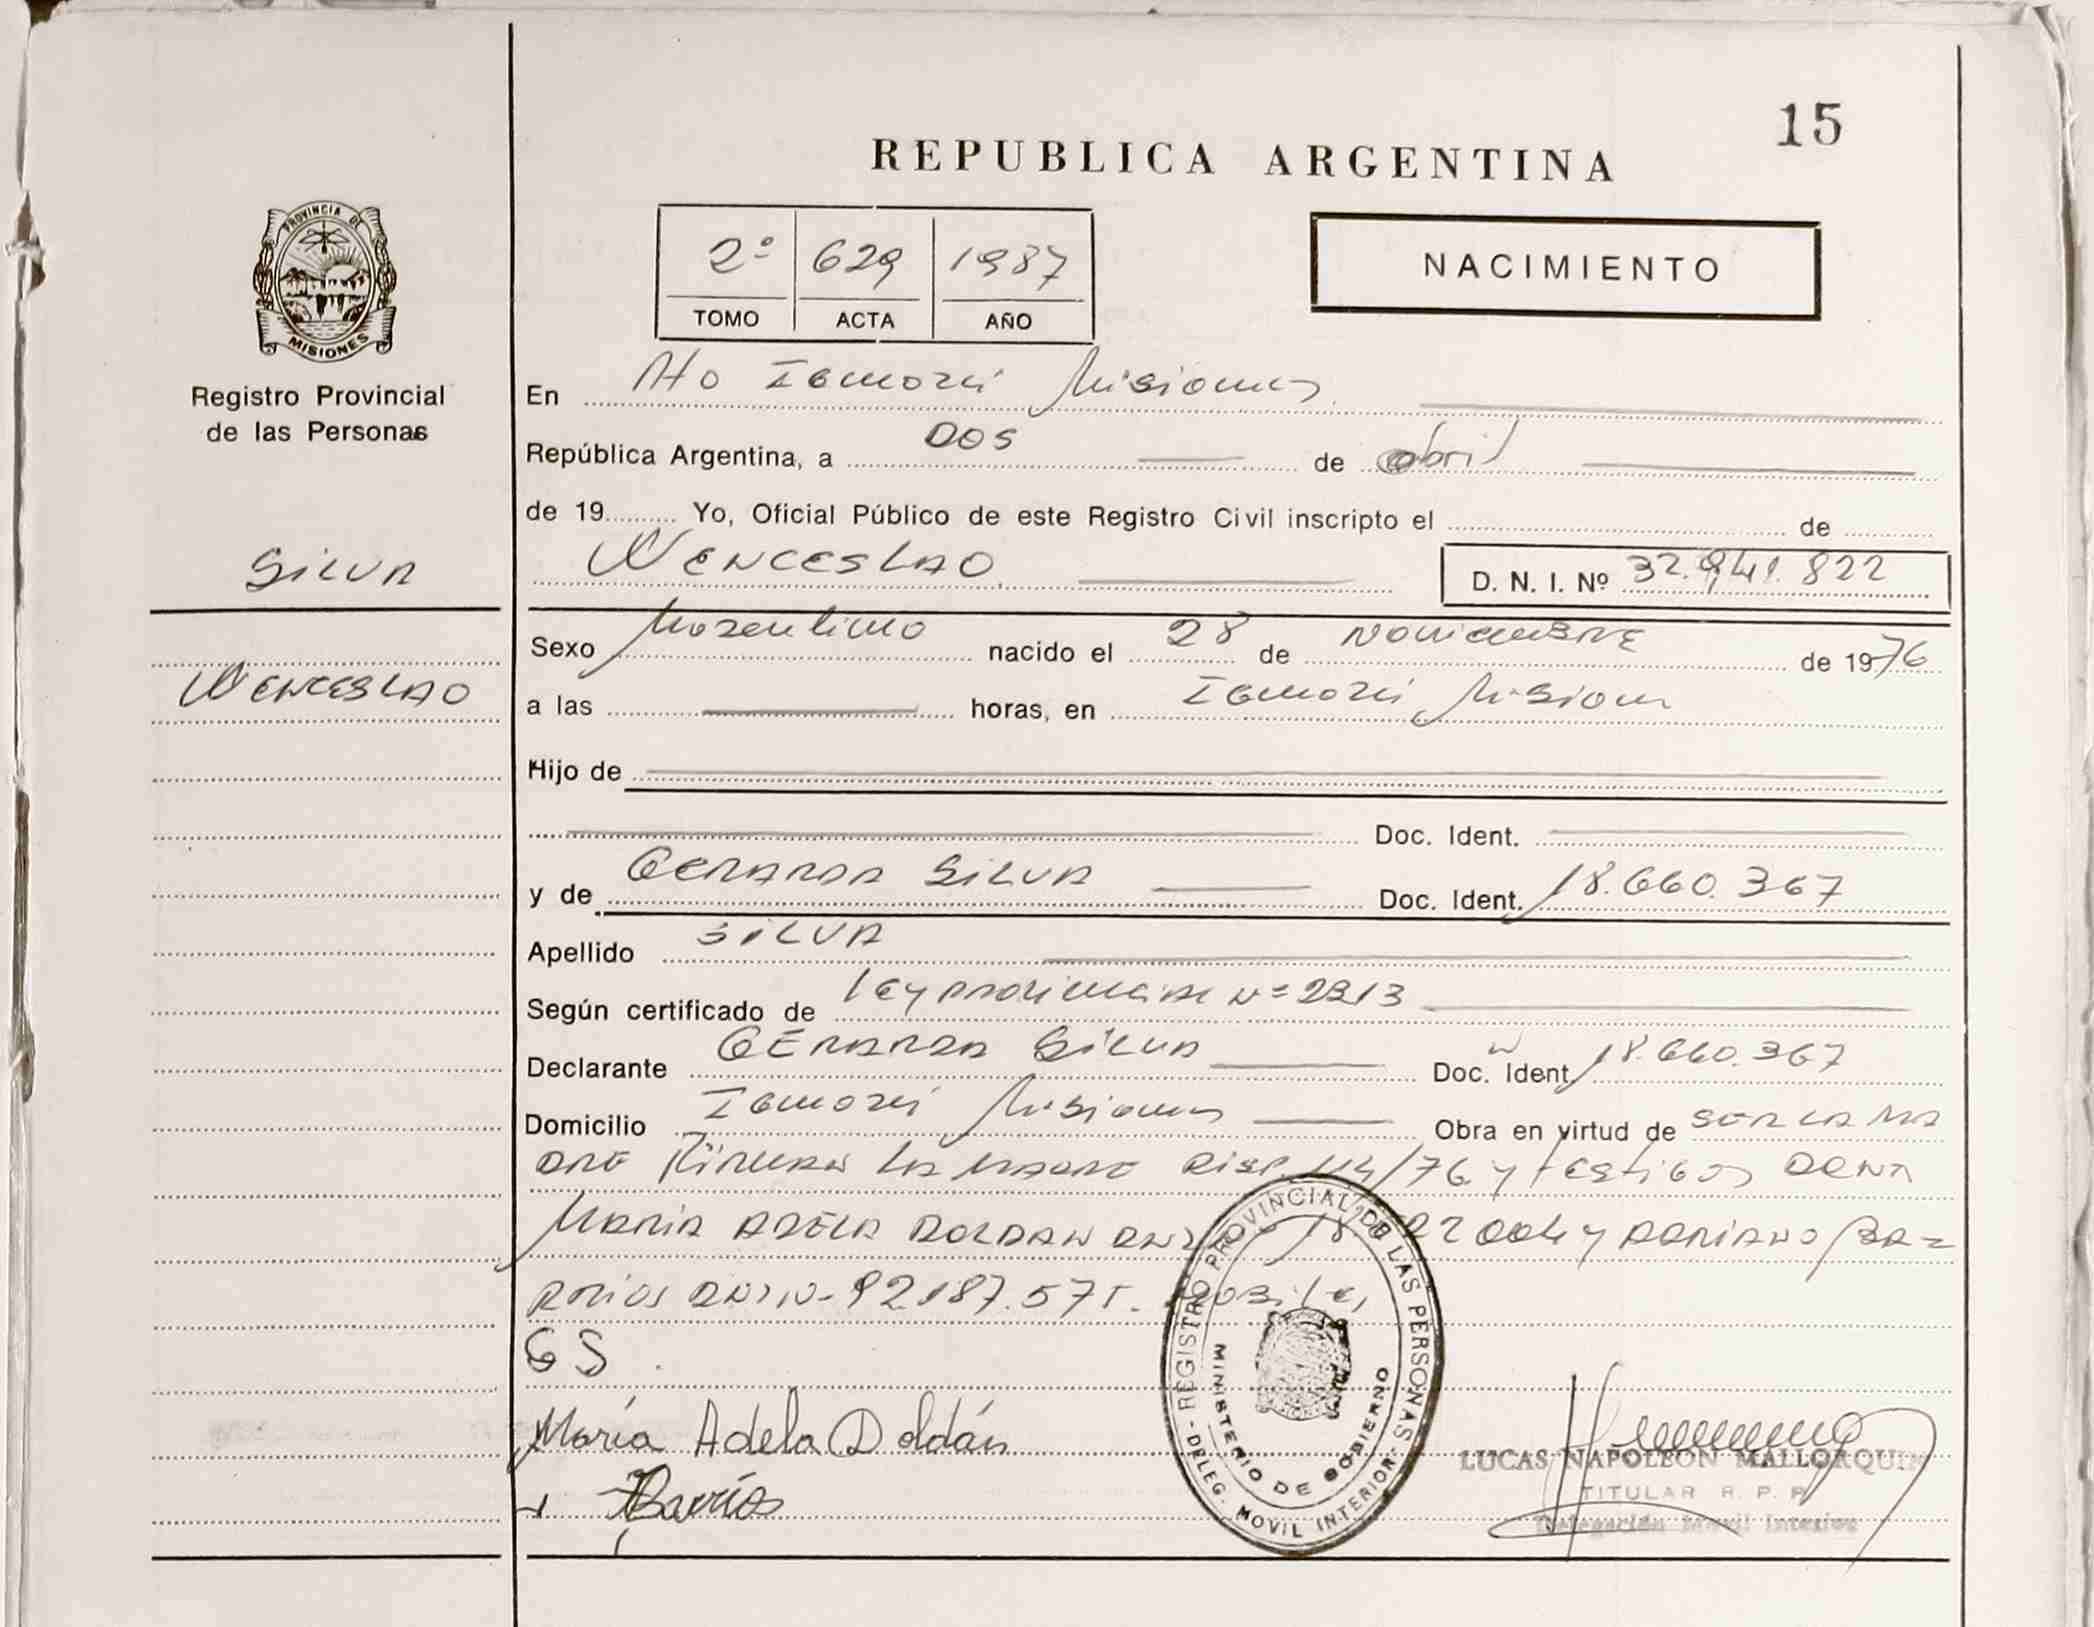 15
REPUBLICA ARGENTINA
2º 629 1987
TOMO ACTA AÑO
NACIMIENTO
PROVINCIA DE
MISIONES
Registro Provincial
de las Personas
En Misiones
República Argentina, a DOS de abril
de 19 Yo, Oficial Público de este Registro Civil inscripto el de
SILVA
WENCESLAO
D. N. I. Nº 32.941.822
WENCESLAO
Sexo Masculino nacido el 28 de NOVIEMBRE de 1976
a las horas, en Misiones
Hijo de
Doc. Ident.
y de GERARDA SILVA Doc. Ident. 18.660.367
Apellido SILVA
Según certificado de Ley PROVINCIAL Nº 2913
Declarante GERARDA SILVA Doc. Ident 18.660.367
Domicilio Misiones Obra en virtud de SER LA MA
DRE LA MADRE DISP. 114/76 y testigos
MARIA ADELA DOLDAN DNI 18 y ADRIANO BA=
RRIOS DNI Nº 92.187.575.
GS
María Adela Doldán
Barrios
REGISTRO PROVINCIAL DE LAS PERSONAS - DELEG. MOVIL INTERIOR -
MINISTERIO DE GOBIERNO
LUCAS NAPOLEON MALLORQUIN
TITULAR R. P. P.
Delegación Movil Interior